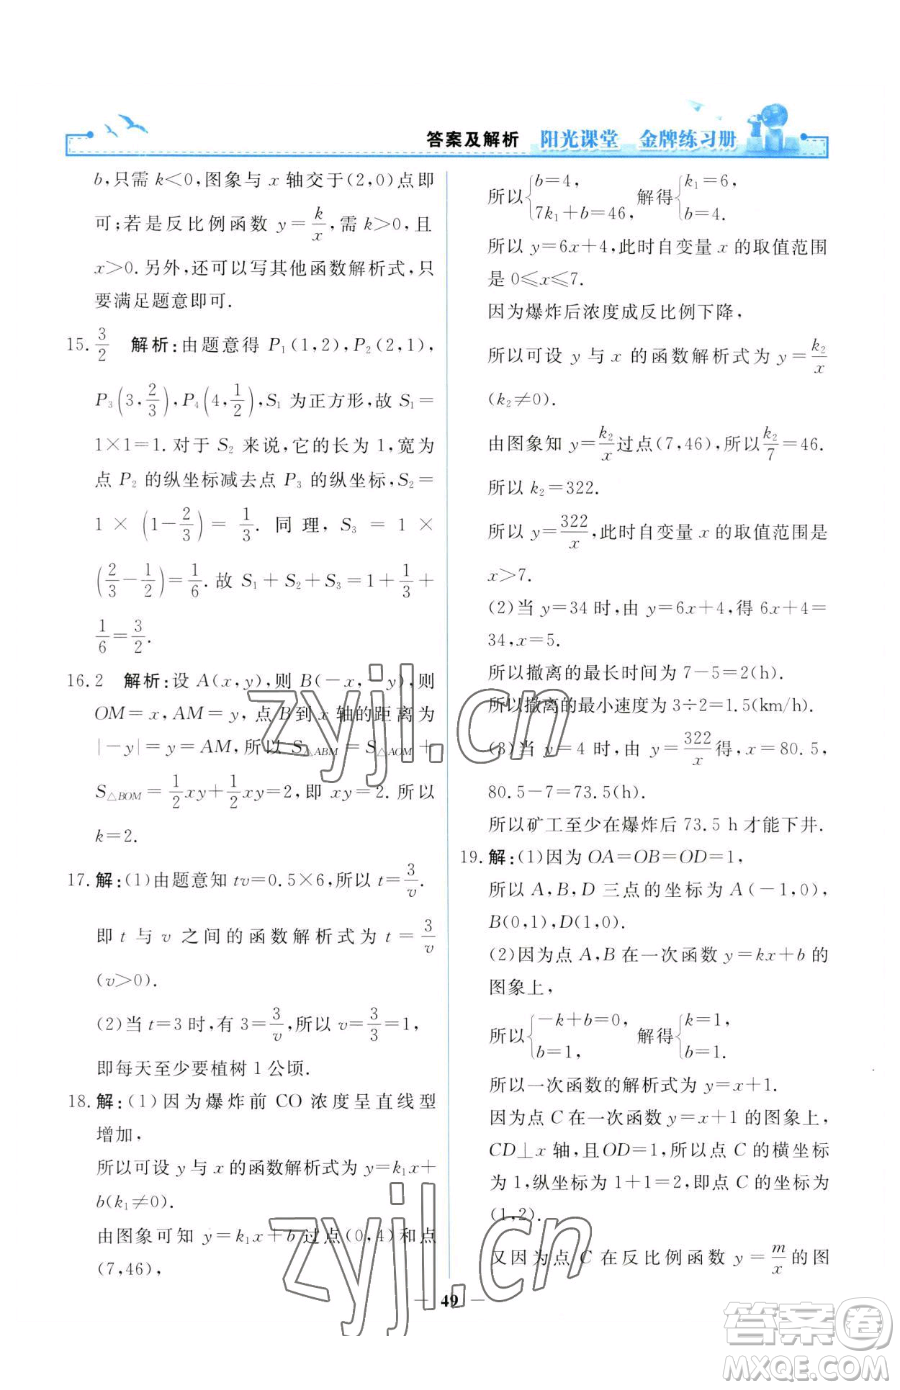 答案及解析 阳光课堂 金牌练习册
b,只需 k<0,图象与 x 轴交于(2,0)点即
可;若是反比例函数 y=k/x,需 k>0,且
x>0.另外,还可以写其他函数解析式,只
要满足题意即可.
15. 3/2 解析:由题意得 P₁(1,2),P₂(2,1),
P₃(3,2/3),P₄(4,1/2),S₁ 为正方形,故 S₁=
1×1=1.对于 S₂ 来说,它的长为 1,宽为
点 P₂ 的纵坐标减去点 P₃ 的纵坐标,S₂=
1×(1-2/3)=1/3.同理,S₃=1×
(2/3-1/2)=1/6.故 S₁+S₂+S₃=1+1/3+
1/6=3/2.
16.2 解析:设 A(x,y),则 B(-x,-y),则
OM=x,AM=y,点 B 到 x 轴的距离为
|-y|=y=AM,所以 S△ABM=S△AOM+
S△BOM=1/2xy+1/2xy=2,即 xy=2.所以
k=2.
17.解:(1)由题意知 tv=0.5×6,所以 t=3/v.
即 t 与 v 之间的函数解析式为 t=3/v
(v>0).
(2)当 t=3 时,有 3=3/v,所以 v=3/3=1,
即每天至少要植树 1 公顷.
18.解:(1)因为爆炸前 CO 浓度呈直线型
增加,
所以可设 y 与 x 的函数解析式为 y=k₁x+
b(k₁≠0).
由图象可知 y=k₁x+b 过点(0,4)和点
(7,46),
所以{b=4, 7k₁+b=46, 解得{k₁=6, b=4.
所以 y=6x+4,此时自变量 x 的取值范围
是 0≤x≤7.
因为爆炸后浓度成反比例下降,
所以可设 y 与 x 的函数解析式为 y=k₂/x
(k₂≠0).
由图象知 y=k₂/x过点(7,46),所以k₂/7=46.
所以 k₂=322.
所以 y=322/x,此时自变量 x 的取值范围是
x>7.
(2)当 y=34 时,由 y=6x+4,得 6x+4=
34,x=5.
所以撤离的最长时间为 7-5=2(h).
所以撤离的最小速度为 3÷2=1.5(km/h).
(3)当 y=4 时,由 y=322/x得,x=80.5,
80.5-7=73.5(h).
所以矿工至少在爆炸后 73.5 h 才能下井.
19.解:(1)因为 OA=OB=OD=1,
所以 A,B,D 三点的坐标为 A(-1,0),
B(0,1),D(1,0).
(2)因为点 A,B 在一次函数 y=kx+b 的
图象上,
所以{-k+b=0, b=1, 解得{k=1, b=1.
所以一次函数的解析式为 y=x+1.
因为点 C 在一次函数 y=x+1 的图象上,
CD⊥x 轴,且 OD=1,所以点 C 的横坐标
为 1,纵坐标为 1+1=2,即点 C 的坐标为
(1,2).
又因为点 C 在反比例函数 y=m/x 的图
— 49 —
zyjl.cn
zyjl.cn
答案圈
MXQE.COM